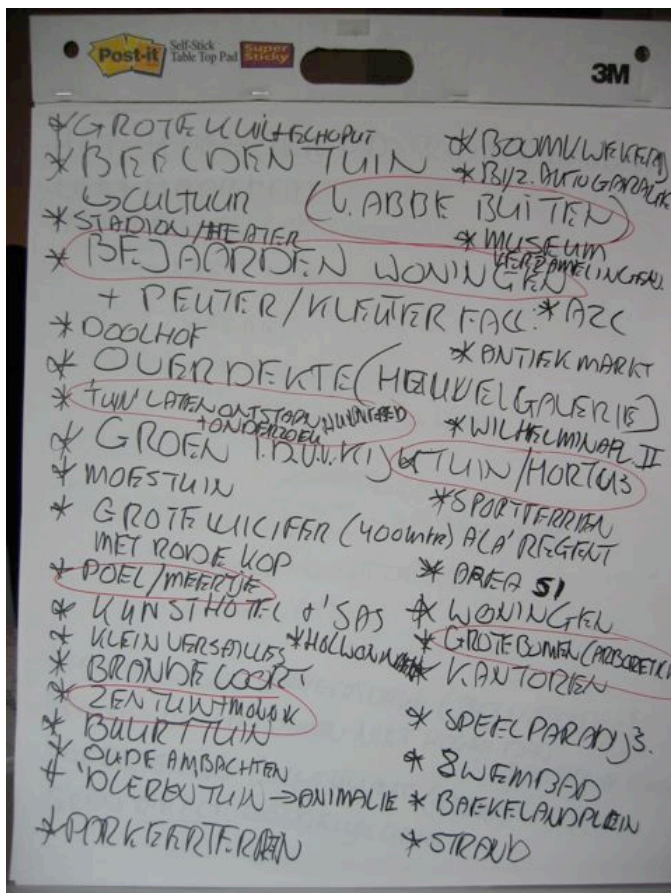 Post-it Self-Stick
Table Top Pad Super
Sticky
3M
* GROTE KUIL + SCHOPUT
* BEELDENTUIN
↳ CULTUUR
* STADION/THEATER
(V. ABBE BUITEN)
* BEJAARDEN WONINGEN
+ PEUTER/KLEUTER FACC.
* DOOLHOF
* OVERDEKTE (HEUVELGALERIE)
* 'TUIN' LATEN ONTSTAAN
+ ONDERZOEK
* GROEN I.D.
* MOESTUIN
* GROTE LUCIFER (400mtr) ALA' REGENT
MET RODE KOP
* POEL/MEERTJE
* KUNSTHOTEL d' SAS
* KLEIN VERSAILLES * HOLWONINGEN
* BRANDEVOORT
* ZENTUIN + MONNIK
* BUURTTUIN
* OUDE AMBACHTEN
* DIERENTUIN → ANIMALIE
* PARKEERTERREIN
* BOOMKWEKERIJ
* BYZ. AUTO GARAGE
* MUSEUM
VERZAMELINGEN
* AZC
* ANTIEK MARKT
* WILHELMINAPL. II
* TUIN/HORTUS
* SPORTTERREIN
* AREA 51
* WONINGEN
* GROTE BOMEN (ARBORETUM
* KANTOREN
* SPEELPARADIJS.
* ZWEMBAD
* BAEKELANDPLEIN
* STRAND